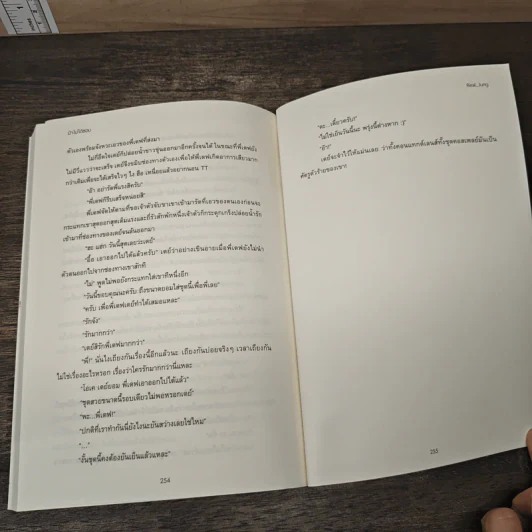 ตัวเองพร้อมจังหวะเอวของพี่เดฟที่สวนมา
ไม่กี่อึดใจเดย์ก็ปล่อยน้ำขาวขุ่นออกมาอีกครั้งจนได้ ในขณะที่พี่เดฟยัง
ไม่มีวี่แววว่าจะเสร็จ เดย์จึงขยับช่องทางตัวเองเพื่อให้พี่เดฟเกิดอาการเสียวมาก
กว่าเดิมเพื่อจะได้เสร็จไวๆ ไง ฮือ เหนื่อยแล้วอยากนอน TT
"อ้า อย่ารัดพี่แรงสิครับ"
"พี่เดฟก็รีบเสร็จหน่อยสิ"
พี่เดฟจัดให้ตามที่ขอเจ้าตัวจับขาเขาเข้ามารัดที่เอวของตนเองก่อนจะ
กระแทกเขาสุดยอกสุดเต็มแรงและถี่รัวสักพักหนึ่งเจ้าตัวก็กระตุกเกร็งปล่อยน้ำรัก
เข้ามาที่ช่องทางของเดย์จนล้นออกมา
"ฮะ แฮก วันนี้สุดเลยว่ะเดย์"
"อื้อ เอาออกไปได้แล้วครับ" เดย์ว่าอย่างเขินอายเมื่อพี่เดฟยังไม่นำ
ตัวตนออกไปจากช่องทางเขาสักที
"ไม่" พูดไม่พอยังกระแทกใส่เขาทีหนึ่งอีก
"วันนี้ขอบคุณนะครับ ถึงขนาดยอมใส่ชุดนี้เพื่อพี่เลย"
"ครับ เพื่อพี่เดฟเดย์ทำได้เสมอแหละ"
"รักจัง"
"รักมากกว่า"
"เดย์สิรักพี่เดฟมากกว่า"
"พี่!" นั่นไงเถียงกันเรื่องนี้อีกแล้วนะ เถียงกันบ่อยจริงๆ เวลาเถียงกัน
ไม่ใช่เรื่องอะไรหรอก เรื่องว่าใครรักมากกว่านี่แหละ
"โอเค เดย์ยอม พี่เดฟเอาออกไปได้แล้ว"
"ชุดสวยขนาดนี้รอบเดียวไม่พอหรอกเดย์"
"พะ...พี่เดฟ!"
"ปกติที่เราทำกันนี่ยังไงนะยันสว่างเลยใช่ไหม"
"..."
"งั้นชุดนี้คงต้องยันเย็นแล้วแหละ"
254
Real_Jung
"พะ...เดี๋ยวครับ!"
"ไม่ใช่เย็นวันนี้นะ พรุ่งนี้ต่างหาก :)"
"อ๊า"
เดย์จะจำไว้ให้แม่นเลย ว่าทั้งคอนแทกต์เลนส์ทั้งชุดคอสเพลย์มันเป็น
ศัตรูตัวร้ายของเขา!
255